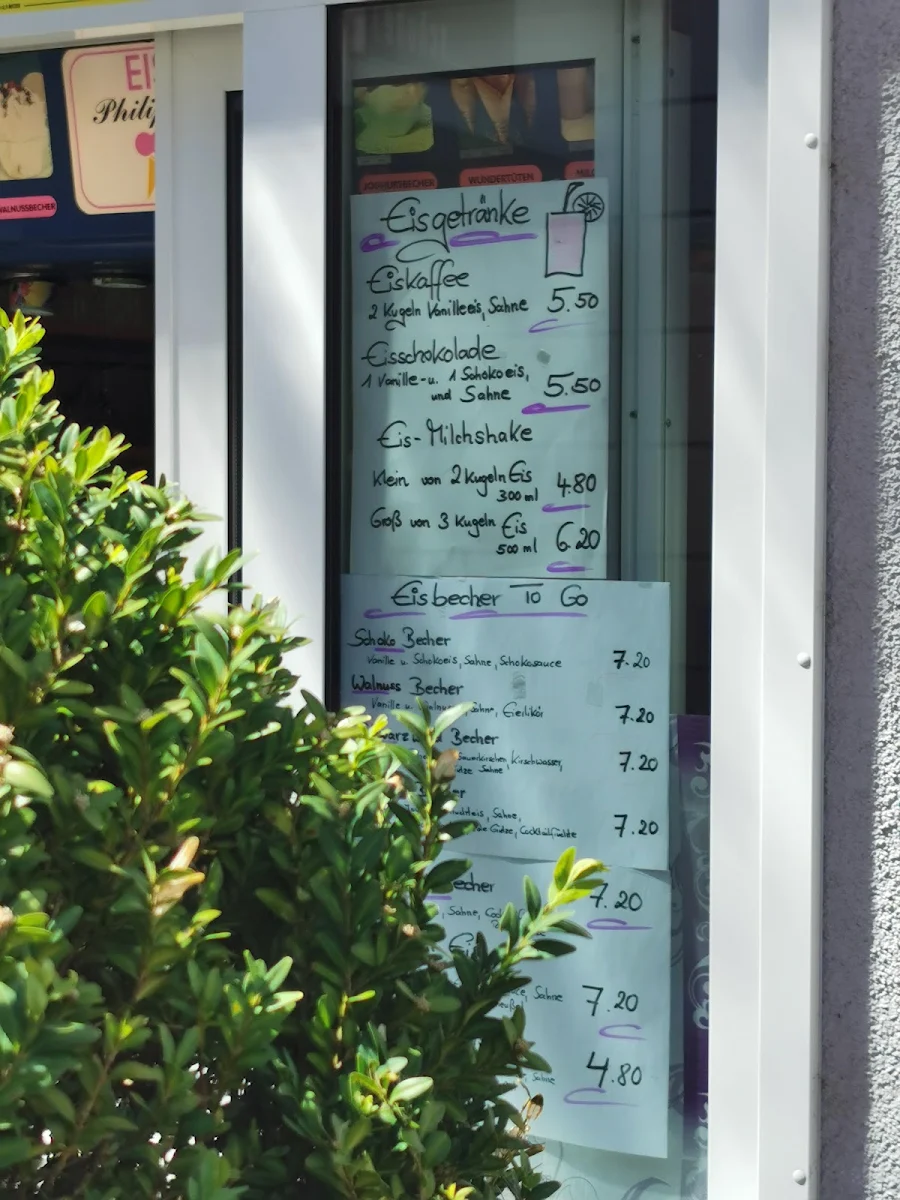 EIS
WALNUSSBECHER
JOGHURTBECHER
WUNDERTÜTEN
Eisgetränke
Eiskaffee
2 Kugeln Vanilleeis, Sahne 5.50
Eisschokolade
1 Vanille- u. 1 Schokoeis,
und Sahne 5.50
Eis-Milchshake
Klein von 2 Kugeln Eis
300 ml 4.80
Groß von 3 Kugeln Eis
500 ml 6.20
Eisbecher To Go
Schoko Becher
Vanille u. Schokoeis, Sahne, Schokosauce 7.20
Walnuss Becher
Vanille u. Sahne, Eierlikör 7.20
Becher
Kirschwasser, 7.20
Sahne
Sahne,
Cocktailfrüchte 7.20
7.20
Sahne,
Sahne 7.20
Sahne 4.80